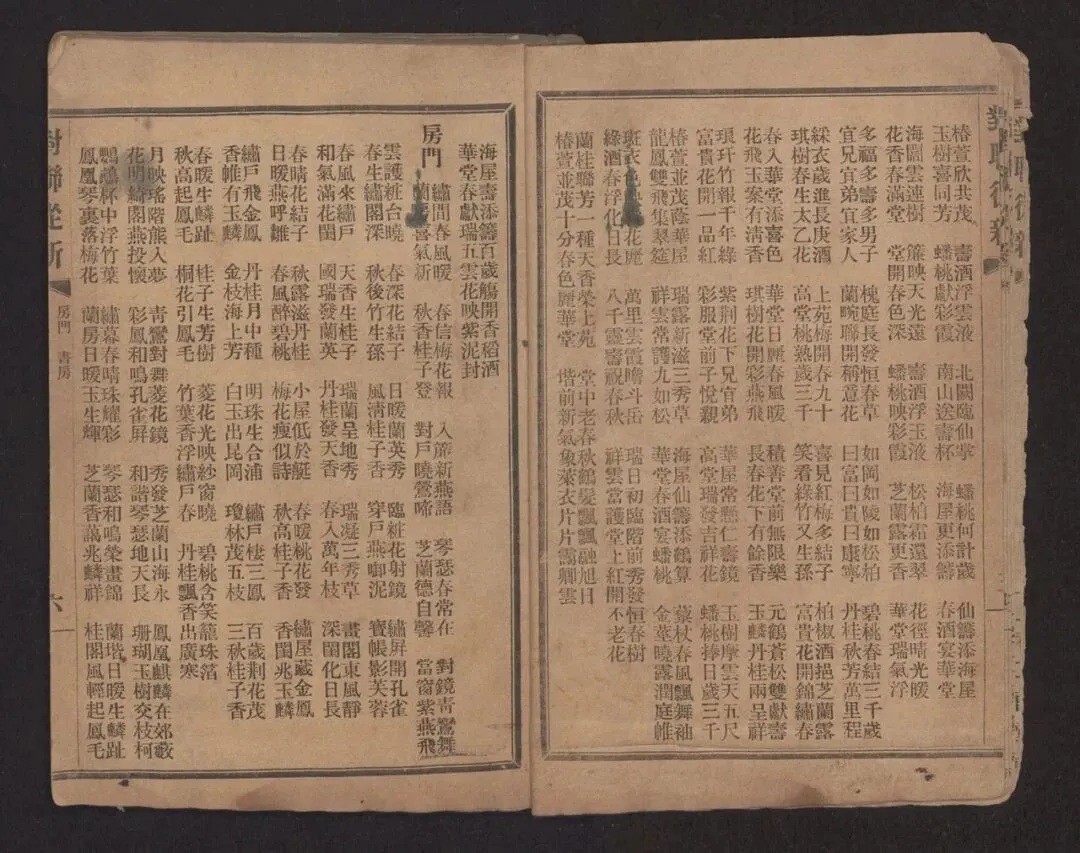 對聯從新
椿萱欣共茂 壽酒浮雲液 北闕臨仙掌 蟠桃何計歲 仙籌添海屋
玉樹喜同芳 蟠桃獻彩霞 南山送壽杯 海屋更添籌 春酒宴華堂
海闊雲連樹 簾映天光遠 壽酒浮玉液 松柏霜還翠 花徑晴光暖
花香春滿堂 堂開春色深 蟠桃映彩霞 芝蘭露更香 華堂瑞氣浮
多福多壽多男子 槐庭長發恒春草 如岡如陵如松柏 碧桃春結三千歲
宜兄宜弟宜家人 蘭畹聯開稱意花 曰富曰貴曰康寧 丹桂秋芳萬里程
綵衣歲進長庚酒 上苑梅開春九十 喜見紅梅多結子 柏椒酒挹芝蘭露
琪樹春生太乙花 高堂桃熟歲三千 笑看綠竹又生孫 富貴花開錦繡春
春入華堂添喜色 華堂日麗春風暖 積善堂前無限樂 元鶴蒼松雙獻壽
花飛玉案有清香 琪樹花開彩燕飛 長春花下有餘香 玉麟丹桂兩呈祥
琅玕竹報千年綠 紫荆花下兄宜弟 華屋常懸仁壽鏡 玉樹摩雲天五尺
富貴花開一品紅 彩服堂前子悅親 高堂瑞發吉祥花 蟠桃捧日歲三千
椿萱並茂蔭華屋 瑞露新滋三秀草 海屋仙籌添鶴算 藜杖春風飄舞袖
龍鳳雙飛集翠筵 祥雲常護九如松 華堂春酒宴蟠桃 金莖曉露潤庭帷
斑衣色花麗 萬里雲霞瞻斗岳 瑞日初臨階前秀發恒春樹
綠酒春浮化日長 八千靈壽祝春秋 祥雲當護堂上紅開不老花
蘭桂聯芳一種天香榮上苑 堂中老春秋鶴髮飄飄融旭日
椿萱並茂十分春色麗華堂 堦前新氣象萊衣片片靄卿雲
海屋壽添籌百歲觴開香稻酒
華堂春獻瑞五雲花映紫泥封
房門 繡間春風暖 春信梅花報 入簾新燕語 琴瑟春常在 對鏡青鸞舞
蘭喜氣新 秋香桂子登 對戶曉鶯啼 芝蘭德自馨 當窗紫燕飛
雲護粧台曉 春深花結子 日暖蘭英秀 臨粧花射鏡 繡屏開孔雀
春生繡閣深 秋後竹生孫 風清桂子香 穿戶燕啣泥 寶帳影芙蓉
春風來繡戶 天香生桂子 瑞蘭呈地秀 瑞凝三秀草 畫閣東風靜
和氣滿花閨 國瑞發蘭英 丹桂發天香 春入萬年枝 深閨化日長
春晴花結子 秋露滋丹桂 小屋低於艇 春暖桃花發 繡屋藏金鳳
日暖燕呼雛 春風醉碧桃 梅花瘦似詩 秋高桂子香 香閨兆玉麟
繡戶飛金鳳 丹桂月中種 明珠生合浦 繡戶棲三鳳 百歲荆花茂
香帷有玉麟 金枝海上芳 白玉出昆岡 瓊林茂五枝 三秋桂子香
春暖生麟趾 桂子生芳樹 菱花光映紗窗曉 碧桃含笑籠珠箔
秋高起鳳毛 桐花引鳳毛 竹葉香浮繡戶春 丹桂飄香出廣寒
月映瑤階熊入夢 青鸞對舞菱花鏡 秀發芝蘭山海永 鳳凰麒麟在郊藪
花明綺閣燕投懷 彩鳳和鳴孔雀屏 和諧琴瑟地天長 珊瑚玉樹交枝柯
鸚鵡杯中浮竹葉 繡幕春晴珠耀彩 琴瑟和鳴榮畫錦 蘭堦日暖生麟趾
鳳凰琴裏落梅花 蘭房日暖玉生輝 芝蘭香藹兆麟祥 桂閣風輕起鳳毛
對聯從新 房門 書房 六